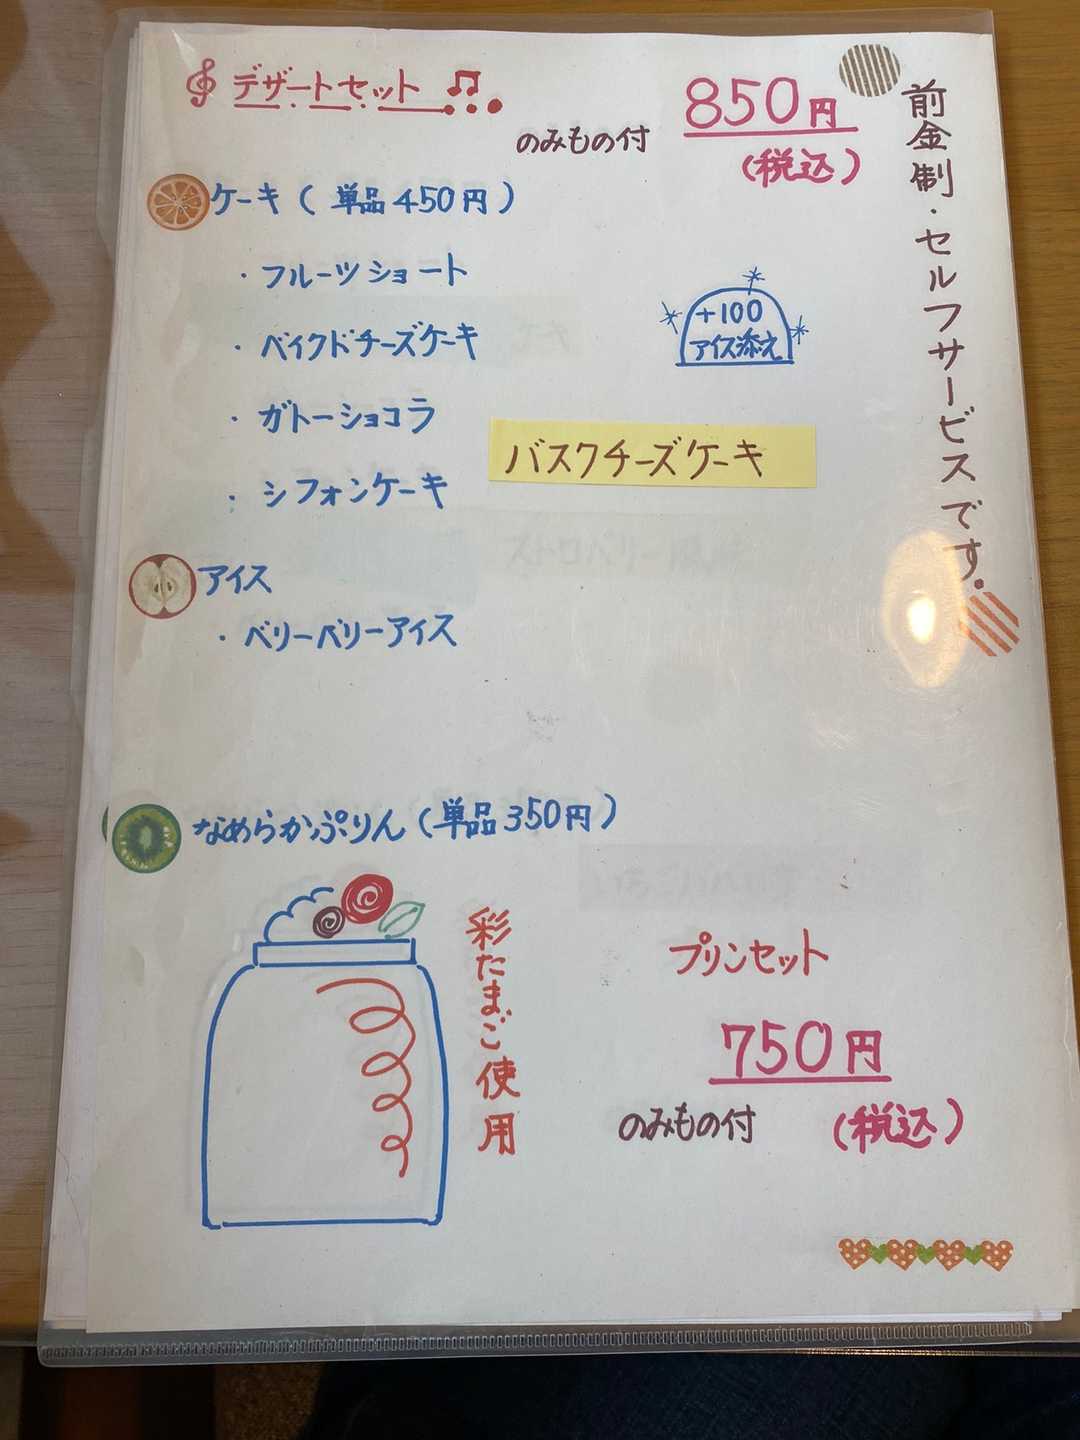 デザートセット
850円
のみもの付
(税込)
前金制・セルフサービスです.
ケーキ(単品450円)
・フルーツショート
・ベイクドチーズケーキ
+100
アイス添え
・ガトーショコラ
バスクチーズケーキ
・シフォンケーキ
アイス
・ベリーベリーアイス
なめらかぷりん(単品350円)
彩たまご使用
プリンセット
750円
のみもの付
(税込)